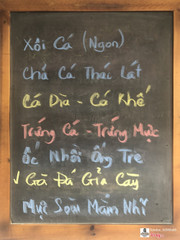 Xôi Cá (Ngon)
Chả Cá Thác Lát
Cá Dìa - Cá Khế
Trứng Cá - Trứng Mực
Ốc Nhồi Ống Tre
√ Gà Đá Giả Cầy
Mực Sữa Mắm Nhĩ